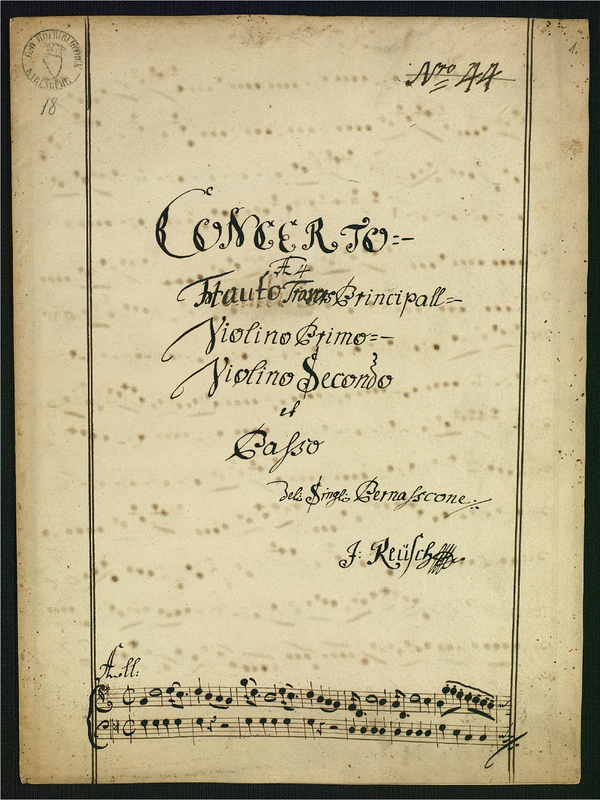 1.
Nro 44
18
CONCERTO=-
A 4
Flauto Travers Principall=
Violino Primo=-
Violino Secondo
et
Basso
Del Singl: Bernasscone
J: Reüsch